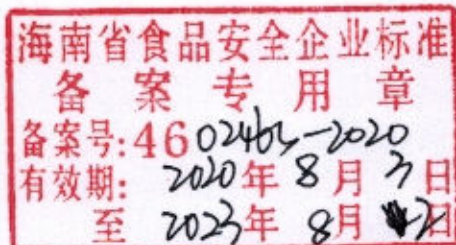 海南省食品安全企业标准
备案专用章
备案号:46 0246S-2020
有效期: 2020年 8月 3日
至 2023年 8月 2日